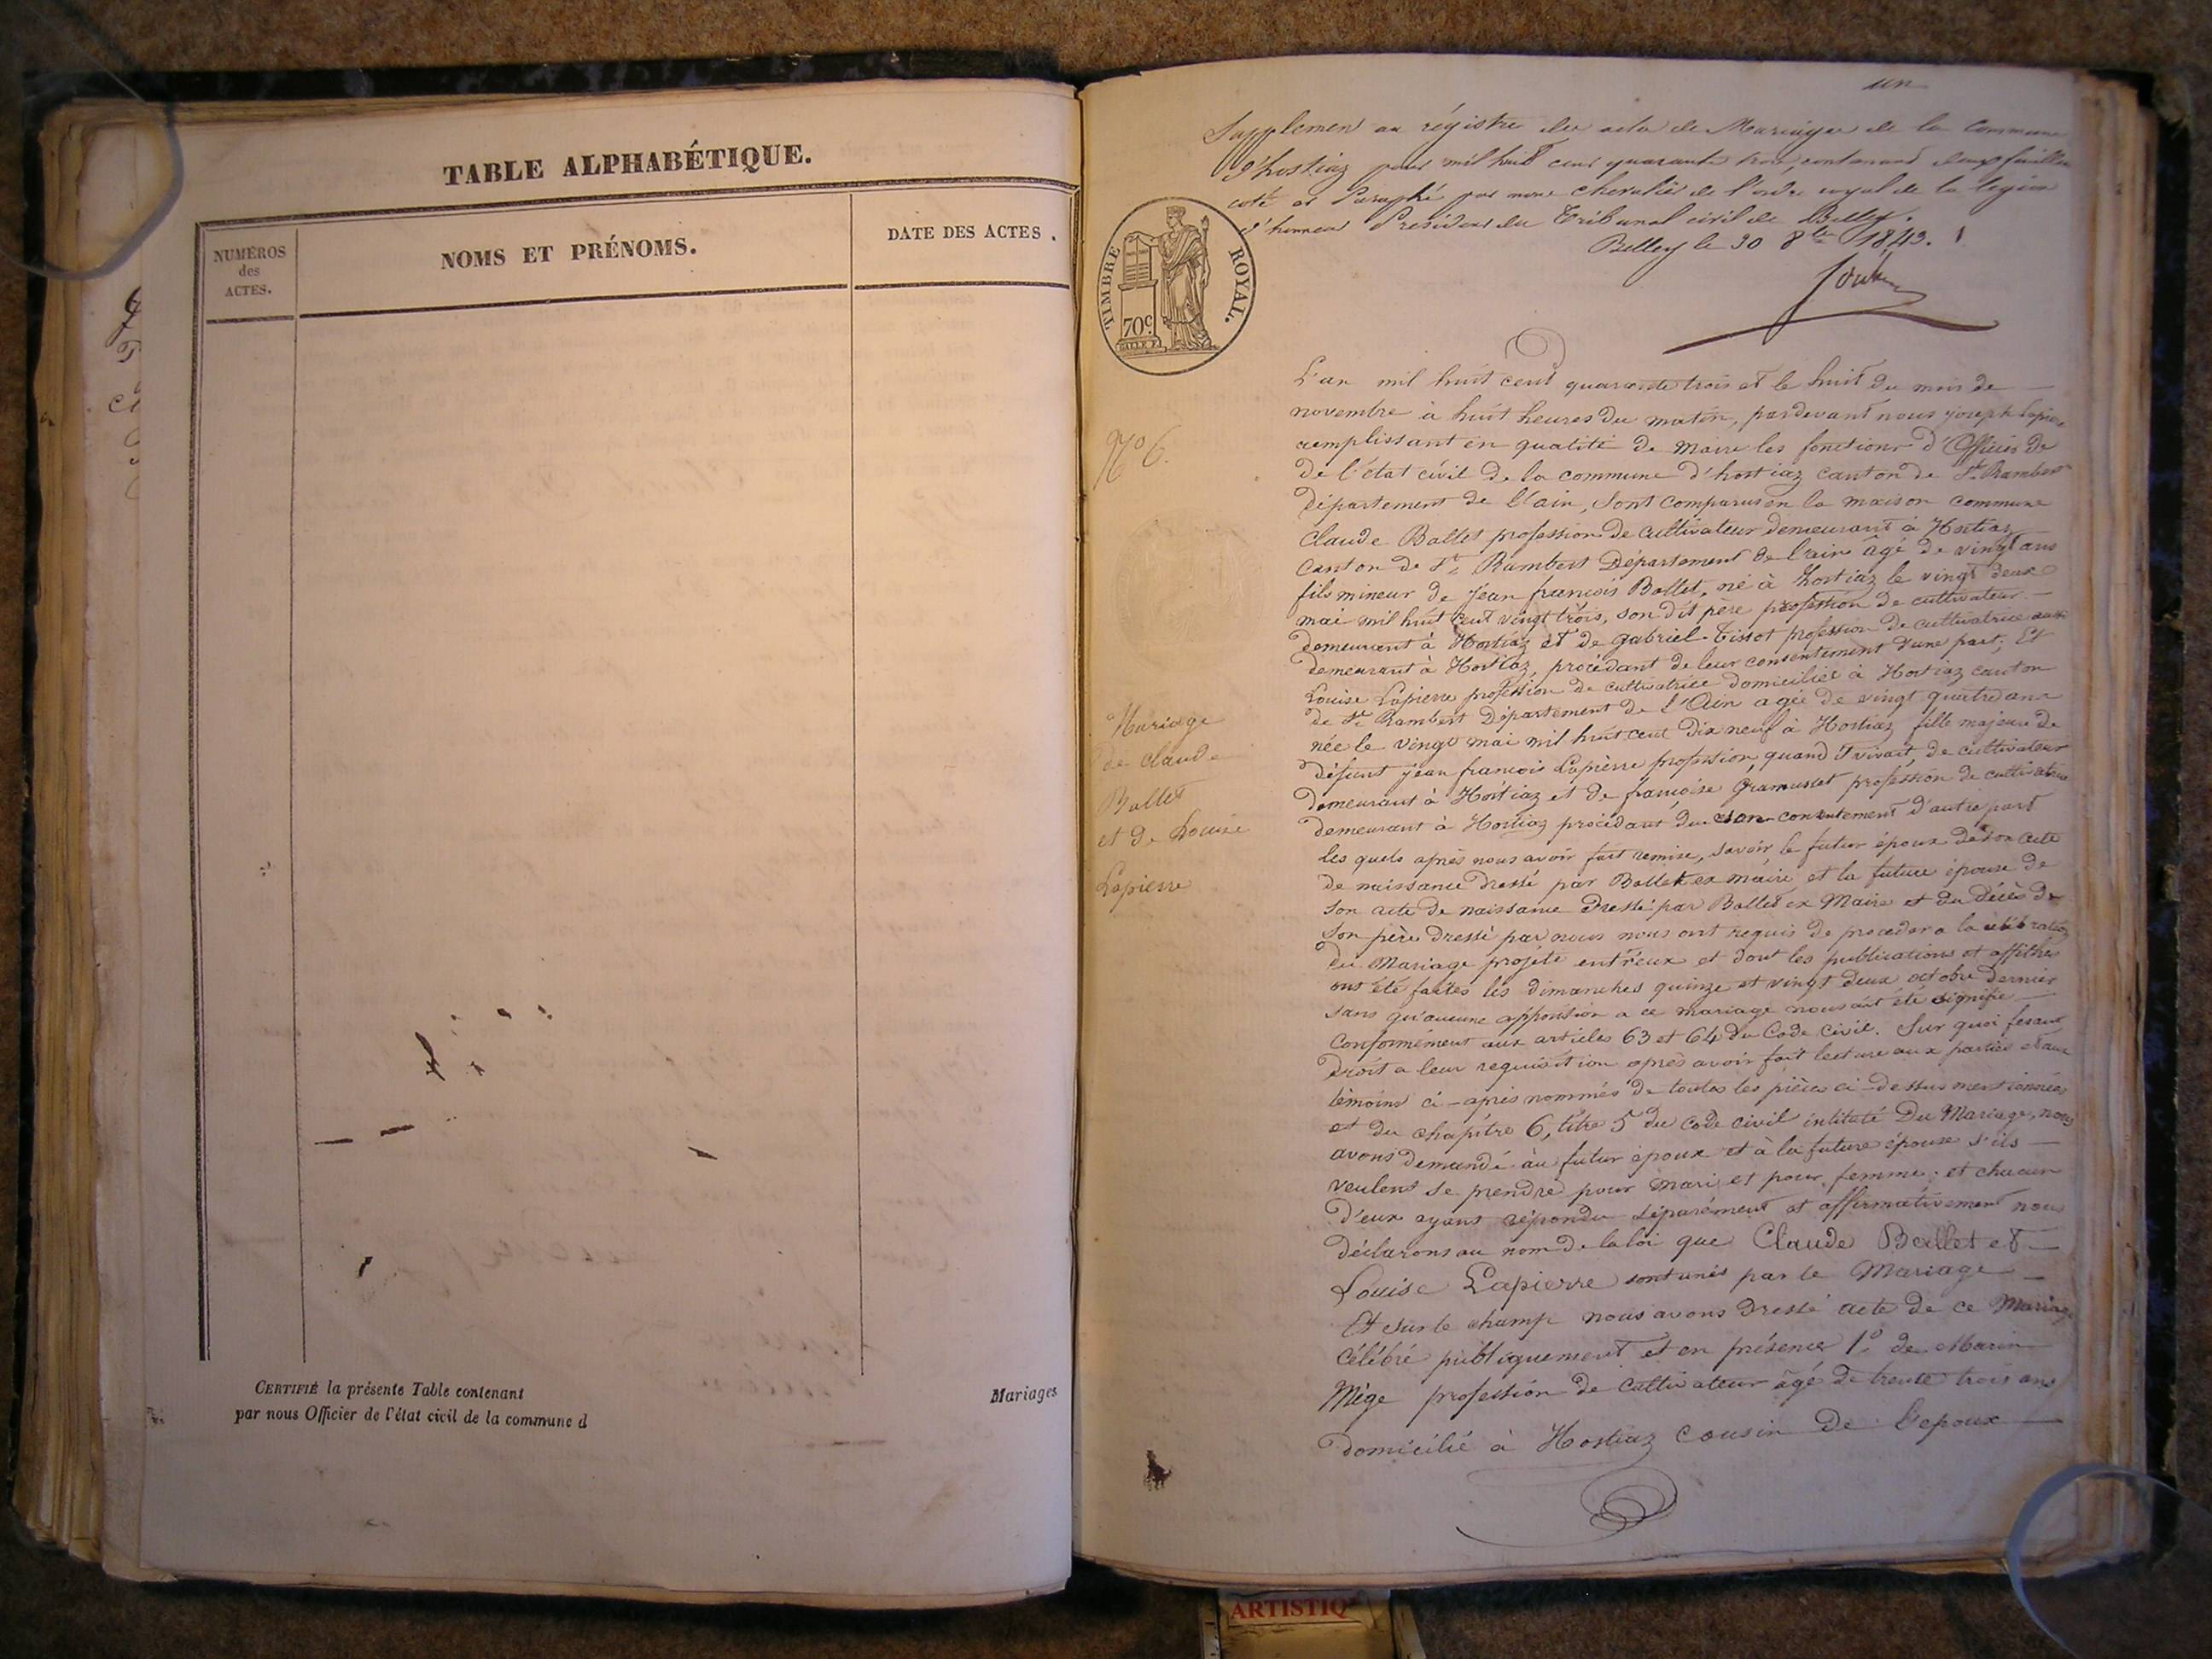 TABLE ALPHABÉTIQUE.
NUMÉROS
des
ACTES.
NOMS ET PRÉNOMS.
DATE DES ACTES.
CERTIFIÉ la présente Table contenant
par nous Officier de l'état civil de la commune d
Mariages
un
Supplement au régistre des actes de Mariages de la Commune
d'hostiaz pour mil huit cent quarante trois, contenant deux feuilles
coté et Paraphé par nous chevalier de l'ordre royal de la légion
d'honneur Président du Tribunal civil de Belley.
Belley le 30 8bre 1843.
TIMBRE ROYAL.
70c.
N° 6.
Mariage
de Claude
Ballet
et de Louise
Lapierre
L'an mil huit cent quarante trois et le huit du mois de
novembre à huit heures du matin, pardevant nous joseph Lapierre
remplissant en qualité de Maire les fonctions d'Officier de
de l'état civil de la commune d'hostiaz canton de St Rambert
département de l'ain, Sont comparus en la maison commune
Claude Ballet profession de cultivateur demeurant à Hostiaz
canton de St Rambert Département de l'ain âgé de vingt ans
fils mineur de jean francois Ballet, né à hostiaz le vingt deux
mai mil huit cent vingt trois, son dit père profession de cultivateur
demeurant à Hostiaz et de gabriel Tissot profession de cultivatrice aussi
demeurant à Hostiaz, procédant de leur consentement d'une part; Et
Louise Lapierre profession de cultivatrice domiciliée à Hostiaz canton
de St Rambert Département de l'Ain agée de vingt quatre ans
née le vingt mai mil huit cent dix neuf à Hostiaz, fille majeure de
défunt jean francois Lapierre profession, quand vivait, de cultivateur
demeurant à Hostiaz et de françoise Gramusset profession de cultivatrice
demeurant à Hostiaz procédant du son consentement d'autre part
les quels après nous avoir fait remise, savoir le futur époux de son acte
de naissance dressé par Ballet ex maire et la future épouse de
son acte de naissance dressé par Ballet ex Maire et du décès de
son père dressé par nous nous ont requis de proceder a la célébration
du Mariage projeté entr'eux et dont les publications et affiches
ont été faites les dimanches quinze et vingt deux octobre dernier
sans qu'aucune opposition a ce mariage nous ait été signifié
conformément aux articles 63 et 64 du Code civil. Sur quoi fesant
droit a leur requisition après avoir fait lecture aux parties et aux
témoins ci-après nommés de toutes les pièces ci-dessus mentionnées
et du chapitre 6, titre 5 du code civil intitulé Du Mariage, nous
avons demandé au futur époux et à la future épouse s'ils
veulent se prendre pour mari et pour femme; et chacun
d'eux ayant répondu séparément et affirmativement nous
déclarons au nom de la loi que Claude Ballet et
Louise Lapierre sont unis par le Mariage
Et sur le champ nous avons dressé acte de ce Mariage
célébré publiquement et en présence 1° de Marin
Mège profession de cultivateur âgé de trente trois ans
domicilié à Hostiaz cousin de l'epoux
ARTISTIQ